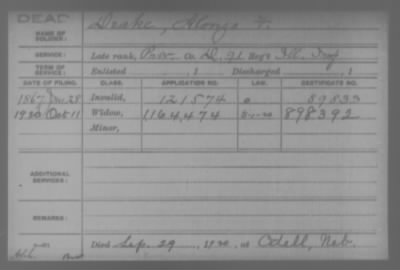 DEAD
NAME OF SOLDIER: Drake, Alonzo F.
SERVICE: Late rank, Priv. Co. D, 91 Reg't Ill. Inf
TERM OF SERVICE: Enlisted , 1 Discharged , 1
DATE OF FILING. CLASS. APPLICATION NO. LAW. CERTIFICATE NO.
1867 28 Invalid, 121574 89833
1920 Oct 11 Widow, 1164474 898392
Minor,
ADDITIONAL SERVICES:
REMARKS:
Died Sep. 29, 1920, at Odell, Neb.